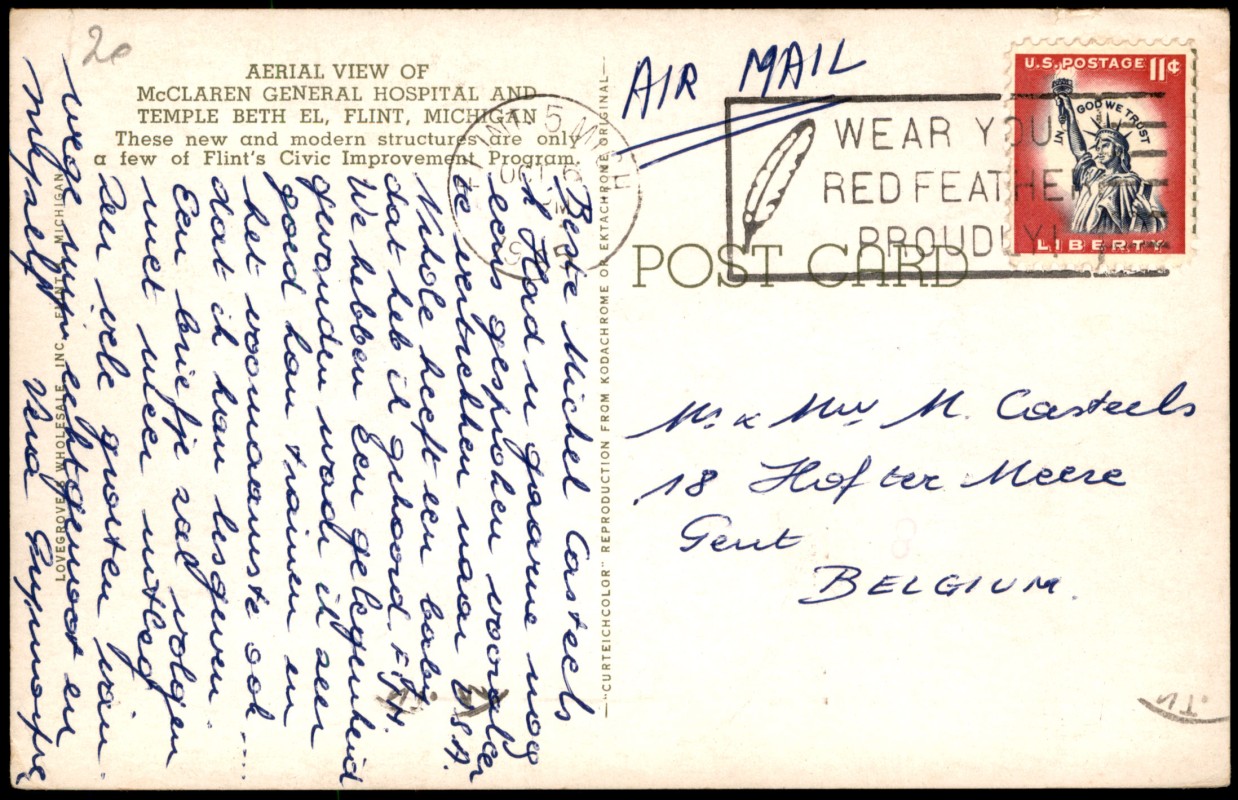 20
AERIAL VIEW OF
McCLAREN GENERAL HOSPITAL AND
TEMPLE BETH EL, FLINT, MICHIGAN
These new and modern structures are only
a few of Flint's Civic Improvement Program.
Beste Michel Casteels
Ik Had u gaarne nog
eens gesproken vooraleer
te vertrekken naar USA.
Nihole heeft een baby
dat heb ik gehoord.
We hebben Een gelegenheid
gevonden waar ik zeer
goed kan trainen en
het voornaamste ook ...
dat ik kan lesgeven.
Een briefje zal volgen
met meer uitleg
Zeer vele groeten van
mijn echtgenoot en
mijzelf
LOVEGROVE'S WHOLESALE, INC., FLINT, MICHIGAN
—"CURTEICHCOLOR" REPRODUCTION FROM KODACHROME OR EKTACHRONE ORIGINAL—
AIR MAIL
FLINT 5 MICH
OCT
PM
WEAR YOU
RED FEATHE
PROUDLY!
U.S. POSTAGE 11¢
IN GOD WE TRUST
LIBERTY
POST CARD
Mr & Mvr M. Casteels
18 Hof ter Meere
Gent
BELGIUM.